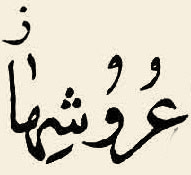 عُرُوشِهَا ز